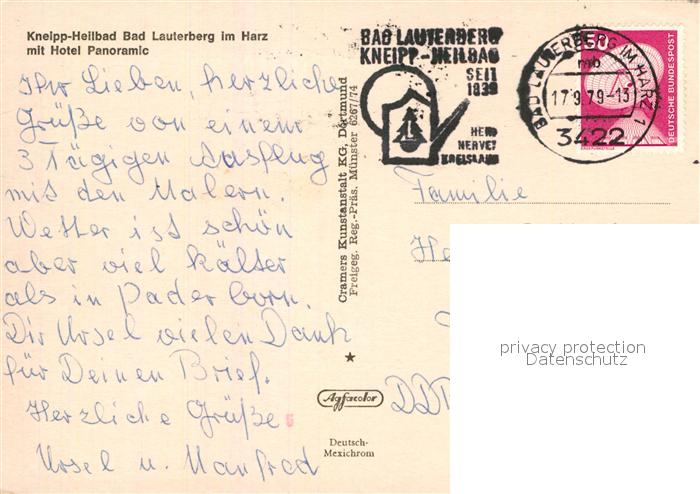 Kneipp-Heilbad Bad Lauterberg im Harz
mit Hotel Panoramic
Ihr Lieben, herzliche
Grüße von einem
3 Tägigen Ausflug
mit den Malern.
Wetter ist schön
aber viel kälter
als in Paderborn.
Dir Ursel vielen Dank
für Deinen Brief.
Herzliche Grüße
6
Ursel u. Manfred
Cramers Kunstanstalt KG, Dortmund
Freigeg. Reg.-Präs. Münster 6267/74
Agfacolor
Deutsch-
Mexichrom
BAD LAUTERBERG
KNEIPP-HEILBAD
SEIT
1839
HERZ
NERVEN
KREISLAUF
BAD LAUTERBERG IM HARZ 1
mb
17.9.79-13
3422
50
DEUTSCHE BUNDESPOST
Familie
He
DDR
privacy protection
Datenschutz